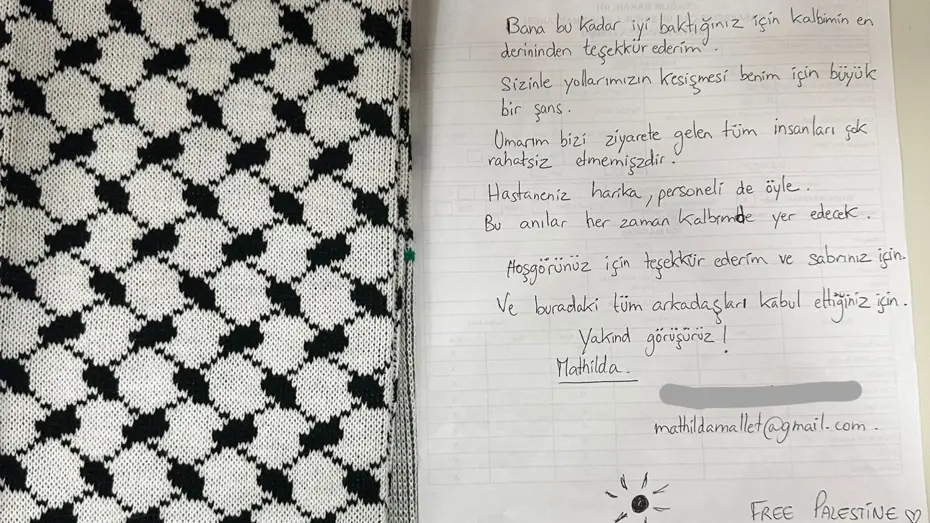 Bana bu kadar iyi baktığınız için kalbimin en
derininden teşekkür ederim.
Sizinle yollarımızın kesişmesi benim için büyük
bir şans.
Umarım bizi ziyarete gelen tüm insanları çok
rahatsiz etmemişzdir.
Hastaneniz harika, personeli de öyle.
Bu anılar her zaman kalbımde yer edecek.
Hoşgörünüz için teşekkür ederim ve sabrınız için.
Ve buradaki tüm arkadaşları kabul ettiğiniz için.
Yakınd görüşürüz!
Mathilda.
mathildamallet@gmail.com.
FREE PALESTINE